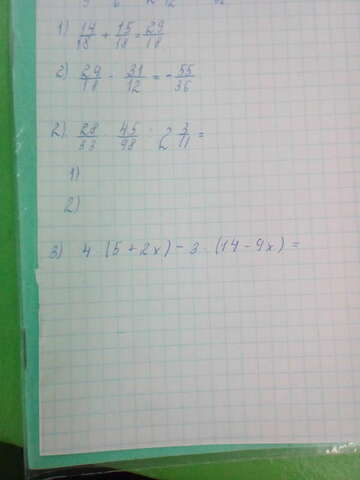 1) 14/18 + 15/18 = 29/18
2) 29/18 - 31/12 = - 55/36
2). 28/33 · 45/98 : 2 3/11 =
1)
2)
3) 4 · (5 + 2x) - 3 · (14 - 9x) =